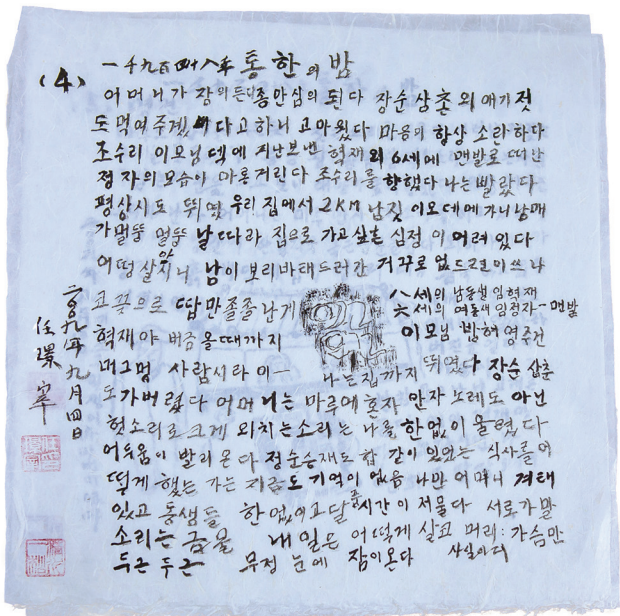 (4) 一千九百四十八年 통한의 밤
어머니가 잠의든니 좀안심의 된다 장순 삼촌 외 애기 젓
도먹여주겠 다고하니 고마웠다 마음의 항상 소란하다
조수리 이모님 댁에 피난보낸 혁재와 6세에 맨발로 떠난
정자의 모습이 아롱거린다 조수리를 향했다 나는 빨랐다
평상시도 뛰였 우리 집에서 2KM 남짓 이모데에 가니 남매
가멀뚱 멀뚱 날 따라 집으로 가고싶은 심정 이 어려있다
어떵살앚니 남이 보리바태드러간 거꾸로 업드련이쓰나
코끚으로 땁만졸졸난게
八세의 남동생 임혁재
六세의 여동생 임정자 - 맨발
이모님 밭허 영주건
혁재야 버금 올때까지
머그멍 사람시라이ㅡ
나는집까지 뛰였다 장순 삼춘
도가버렸다 어머니는 마루에 혼자 안자 노레도 아닌
헛소리로 크게 외치는소리는 나를 한없이 울렸다
어두움이 빨리 온다 정순승재도 합 같이 있었는 식사를 어
떻게 했는 가는 지금도 기억이 없음 나만 어머니 겨태
있고 동생들 한없이고달 줄시간이 저물다 서류가말
소리는 금물 내일은 어떻게 살고 머리: 가슴만
두근 두근 무정 눈에 잠이온다
二〇〇九年 九月 四日
任璟宰